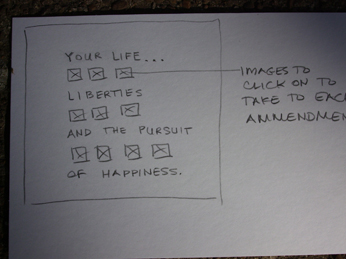 YOUR LIFE...
LIBERTIES
AND THE PURSUIT
OF HAPPINESS.
IMAGES TO
CLICK ON TO
TAKE TO EACH
AMMENDMEN